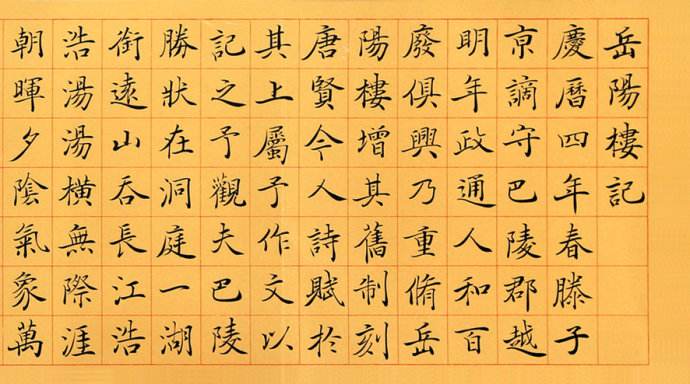 岳陽樓記
慶曆四年春滕子
京謫守巴陵郡越
明年政通人和百
廢俱興乃重脩岳
陽樓增其舊制刻
唐賢今人詩賦於
其上屬予作文以
記之予觀夫巴陵
勝狀在洞庭一湖
銜遠山吞長江浩
浩湯湯橫無際涯
朝暉夕陰氣象萬